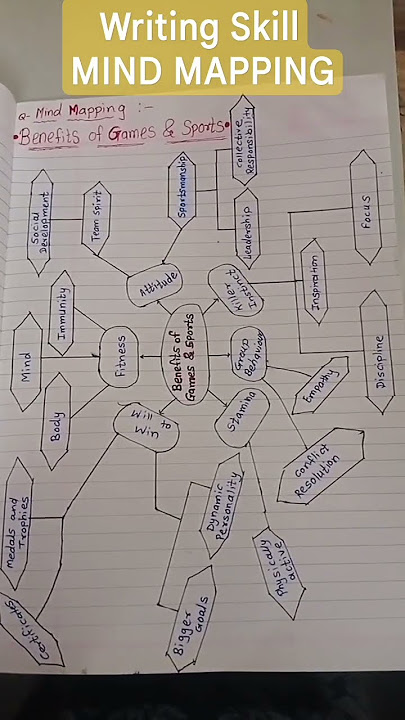 Writing Skill
MIND MAPPING
Q- Mind Mapping :-
• Benefits of Games & Sports •
Collective
Responsibility
Sportsmanship
Leadership
Focus
Social
Development
Team spirit
Attitude
Killer
Instinct
Inspiration
Immunity
Mind
Fitness
Benefits of
Games & Sports
Group
Behaviour
Empathy
Discipline
Body
Will to
Win
Stamina
Conflict
Resolution
Medals and
Trophies
Dynamic
Personality
Physically
active
Certificates
Bigger
Goals